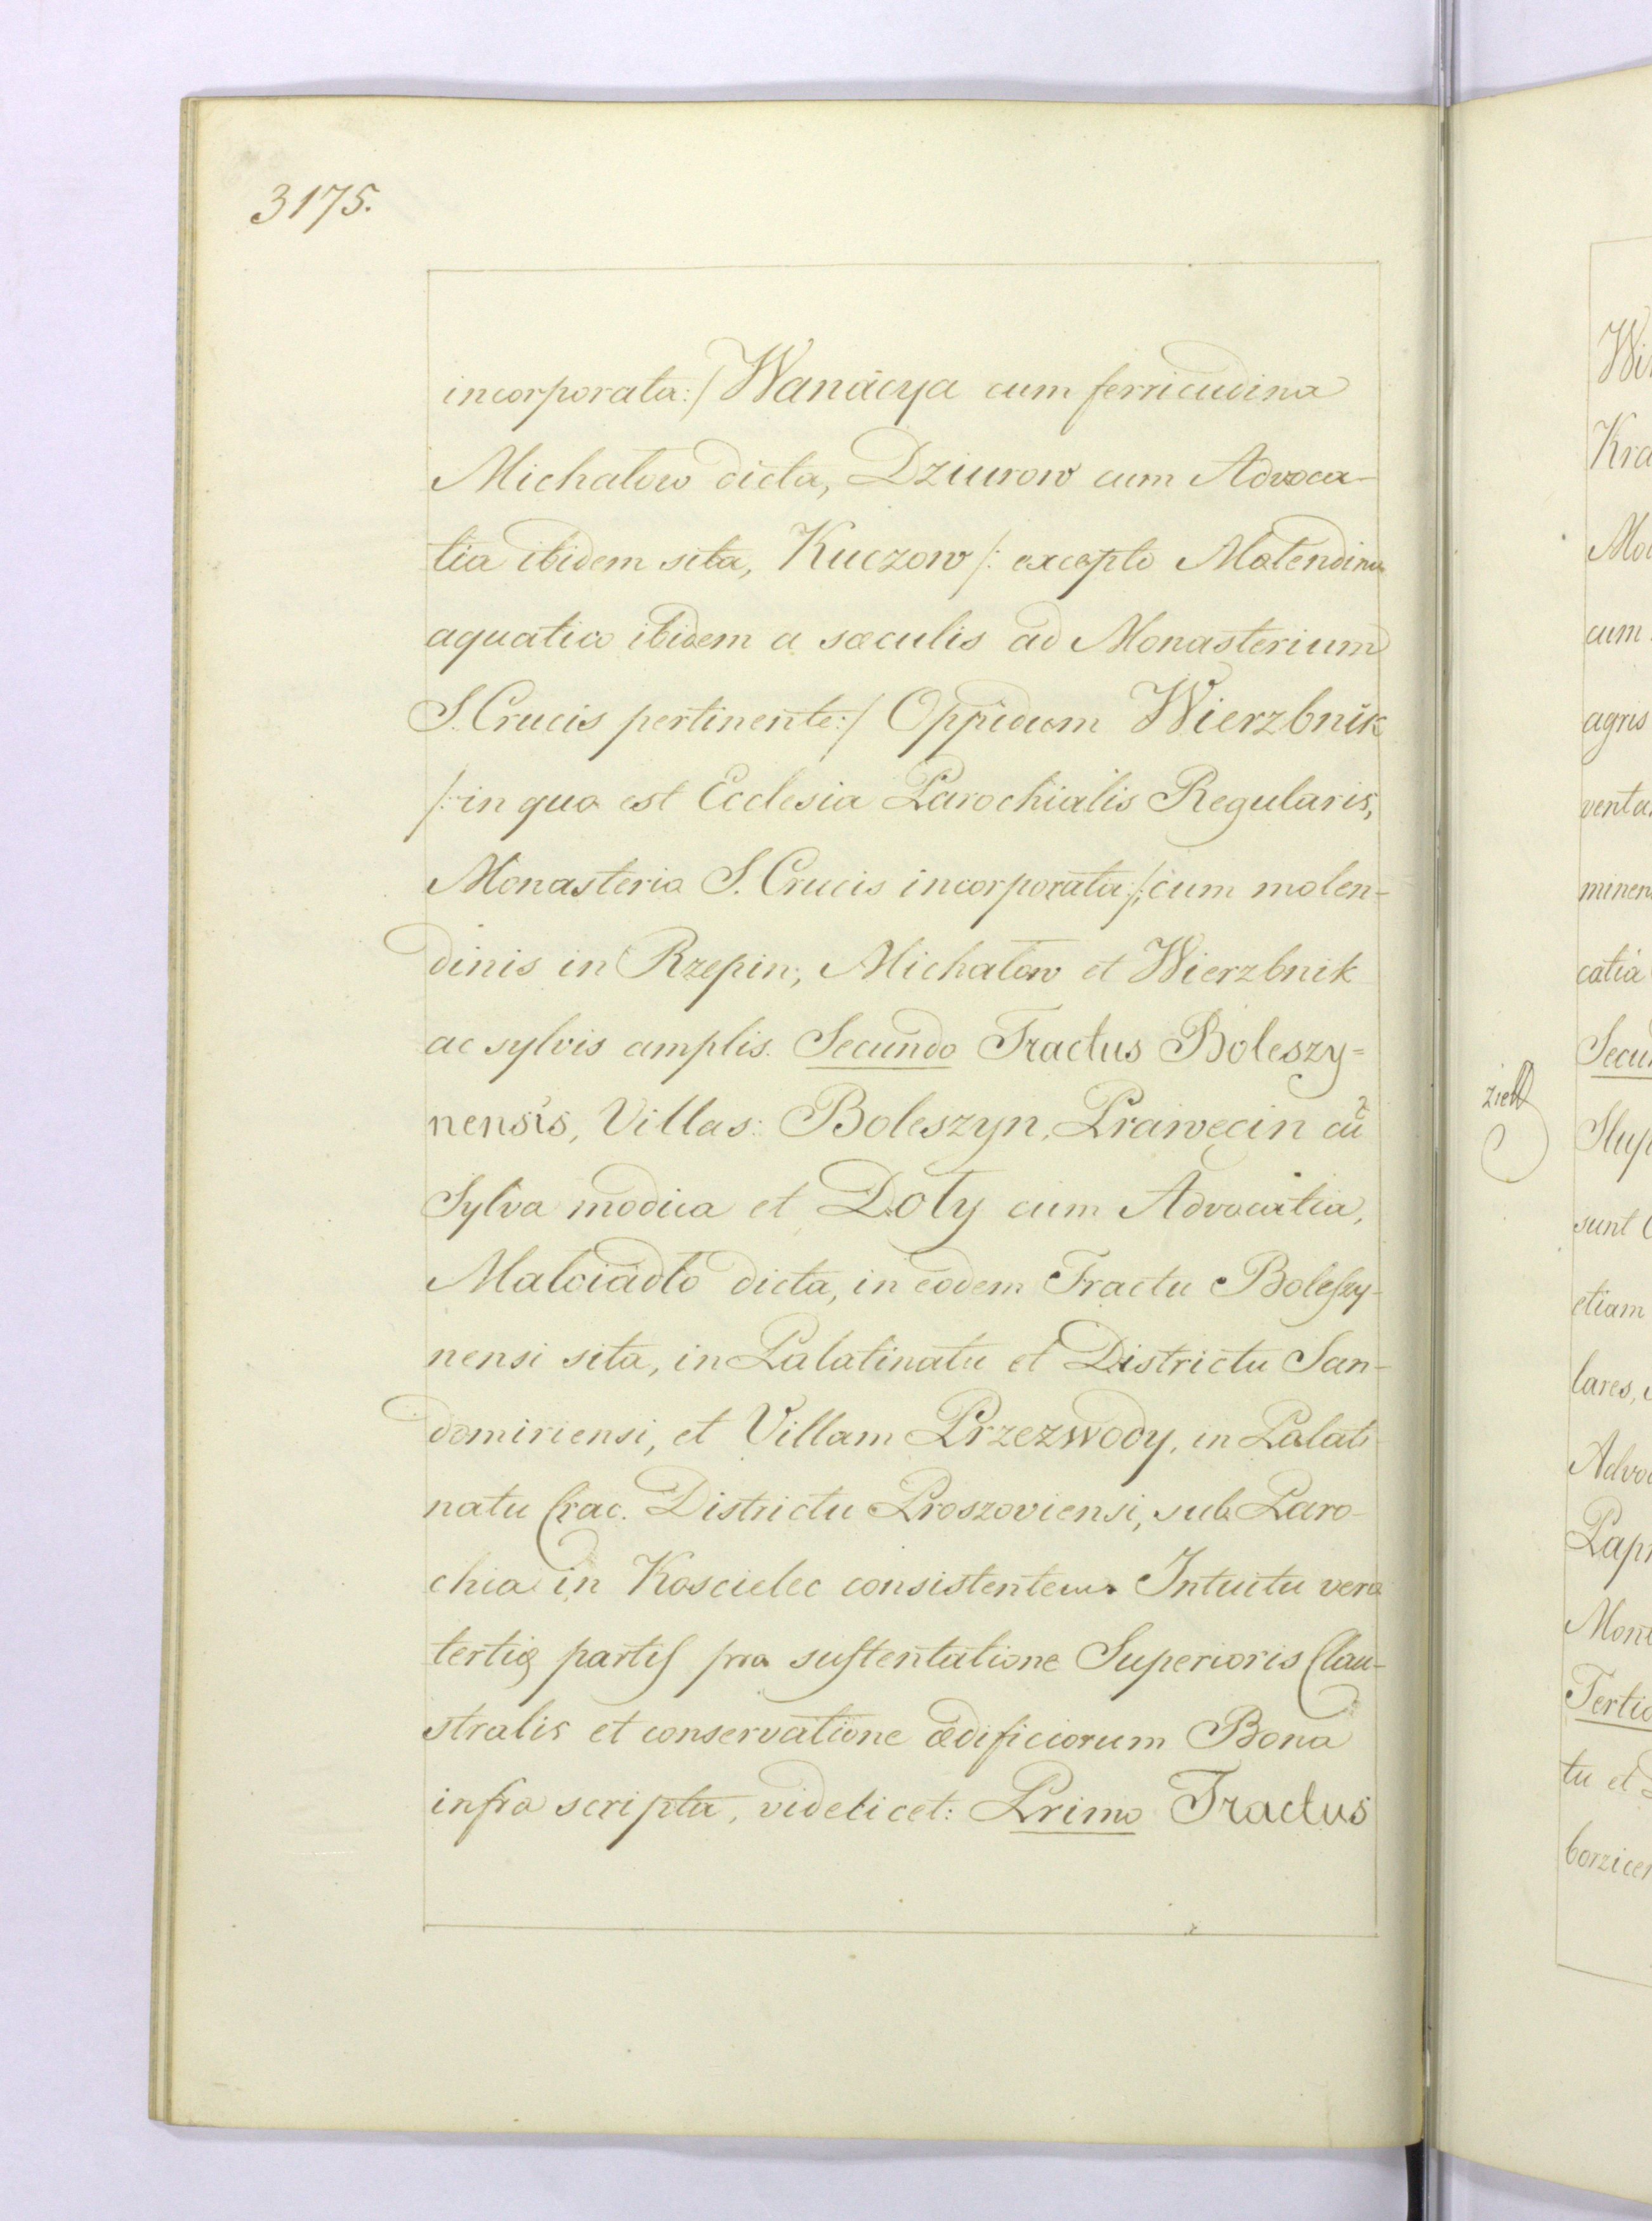 3175.
incorporata:/ Wanacya cum ferricudina
Michałow dicta, Dziurow cum Advoca-
tia ibidem sita, Kuczow /: excepto Molendino
aquatico ibidem a sæculis ad Monasterium
S. Crucis pertinente:/ Oppidum Wierzbnik
/: in quo est Ecclesia Parochialis Regularis,
Monasterio S. Crucis incorporata:/ cum molen-
dinis in Rzepin, Michałow et Wierzbnik
ac sylvis amplis. Secundo Tractus Boleszy=
nensis, Villas: Boleszyn, Prawęcin cũ
Sylva modica et Doły cum Advocatia,
Małciadło dicta, in eodem Tractu Boleſzy-
nensi sita, in Palatinatu et Districtu San-
domiriensi, et Villam Przezwody, in Palati
natu Crac. Districtu Proszoviensi, sub Paro-
chia in Koscielec consistentem. Intuitu vero
tertię partiſ pro suſtentatione Superioris Clau-
stralis et conservatione ædificiorum Bona
infra scripta, videlicet: Primo Tractus
Kra
cum
agris
minen
catia
Secun
Słup
sunt
etiam
lares,
Advoc
Papr
Mont
Tertio
tu et
borzicen